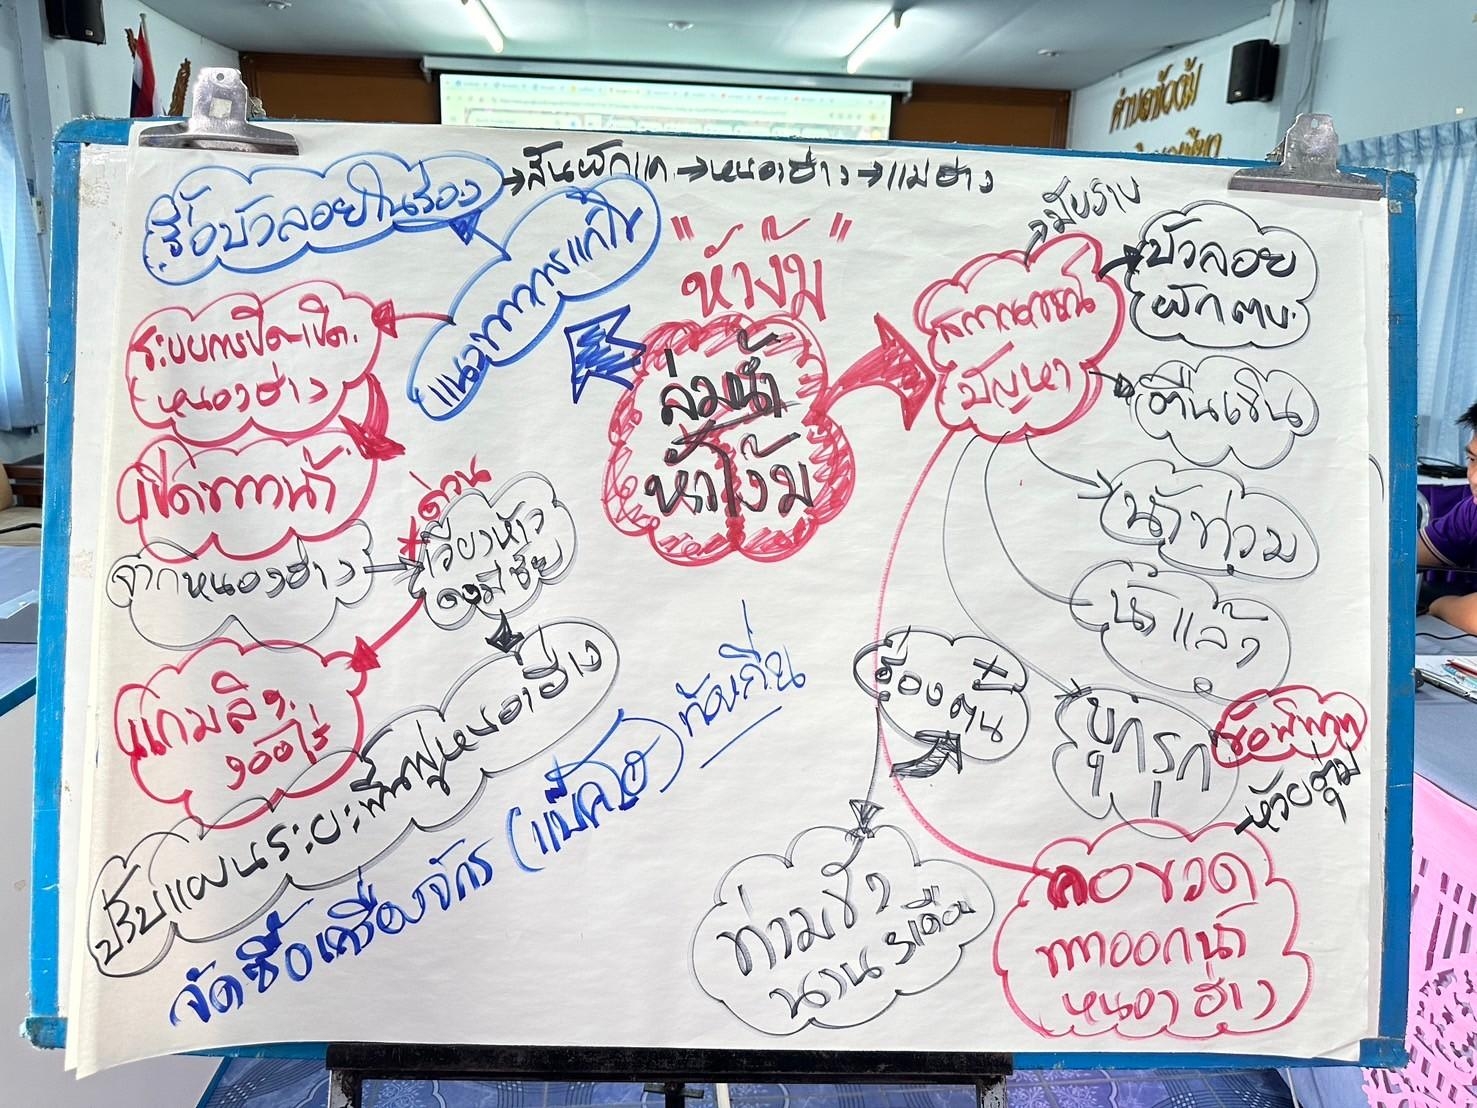 รื้อบัวลอยในร่อง
→ สันผักแค → หนองฮ่าง → แม่ฮ่าง
แนวทางการแก้ไข
"ห้างุ้ม"
ลุ่มน้ำ
ห้วงุ้ม
สถานการณ์
ปัญหา
บัวลอย
ผักตบ.
ตื้นเขิน
น้ำท่วม
น้ำแล้ง
บุกรุก
ข้อพิพาท
คอขวด
ทางออกน้ำ
หนองฮ่าง
ร่องตัน
ท่วมขัง
นาน
ระบบการปิด-เปิด.
หนองฮ่าง
เปิดทางน้ำ
จากหนองฮ่าง
* ด่วน
แก้มลิง.
ปรับแผนระยะฟื้นฟูหนองฮ่าง
จัดซื้อเครื่องจักร (แบ็คโฮ) ท้องถิ่น